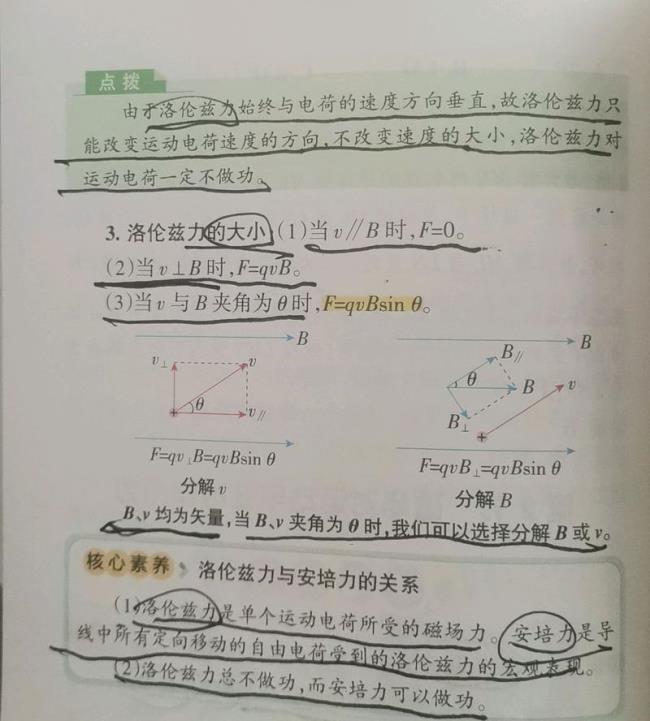 点拨
由于洛伦兹力始终与电荷的速度方向垂直,故洛伦兹力只
能改变运动电荷速度的方向,不改变速度的大小,洛伦兹力对
运动电荷一定不做功。
3. 洛伦兹力的大小:(1)当v∥B时,F=0。
(2)当v⊥B时,F=qvB。
(3)当v与B夹角为θ时,F=qvBsin θ。
B
v⊥ v
θ
v∥
F=qv⊥B=qvBsin θ
分解v
B
B∥
θ B v
B⊥
F=qvB⊥=qvBsin θ
分解B
B、v均为矢量,当B、v夹角为θ时,我们可以选择分解B或v。
核心素养 洛伦兹力与安培力的关系
(1)洛伦兹力是单个运动电荷所受的磁场力。安培力是导
线中所有定向移动的自由电荷受到的洛伦兹力的宏观表现。
(2)洛伦兹力总不做功,而安培力可以做功。